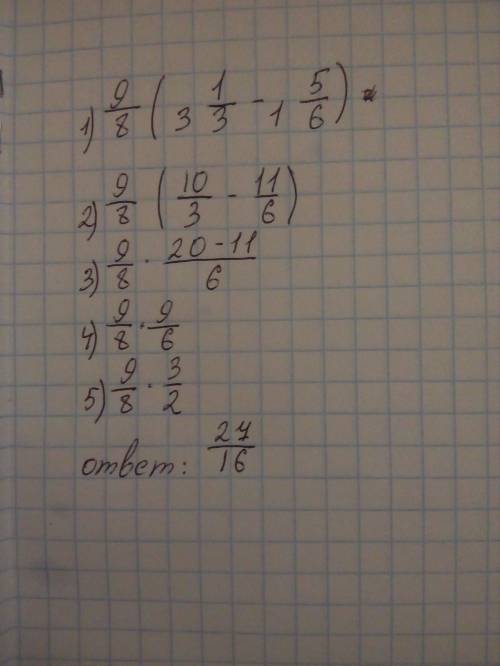 1) 9/8 (3 1/3 - 1 5/6) =
2) 9/8 (10/3 - 11/6)
3) 9/8 · 20-11/6
4) 9/8 · 9/6
5) 9/8 · 3/2
ответ: 27/16